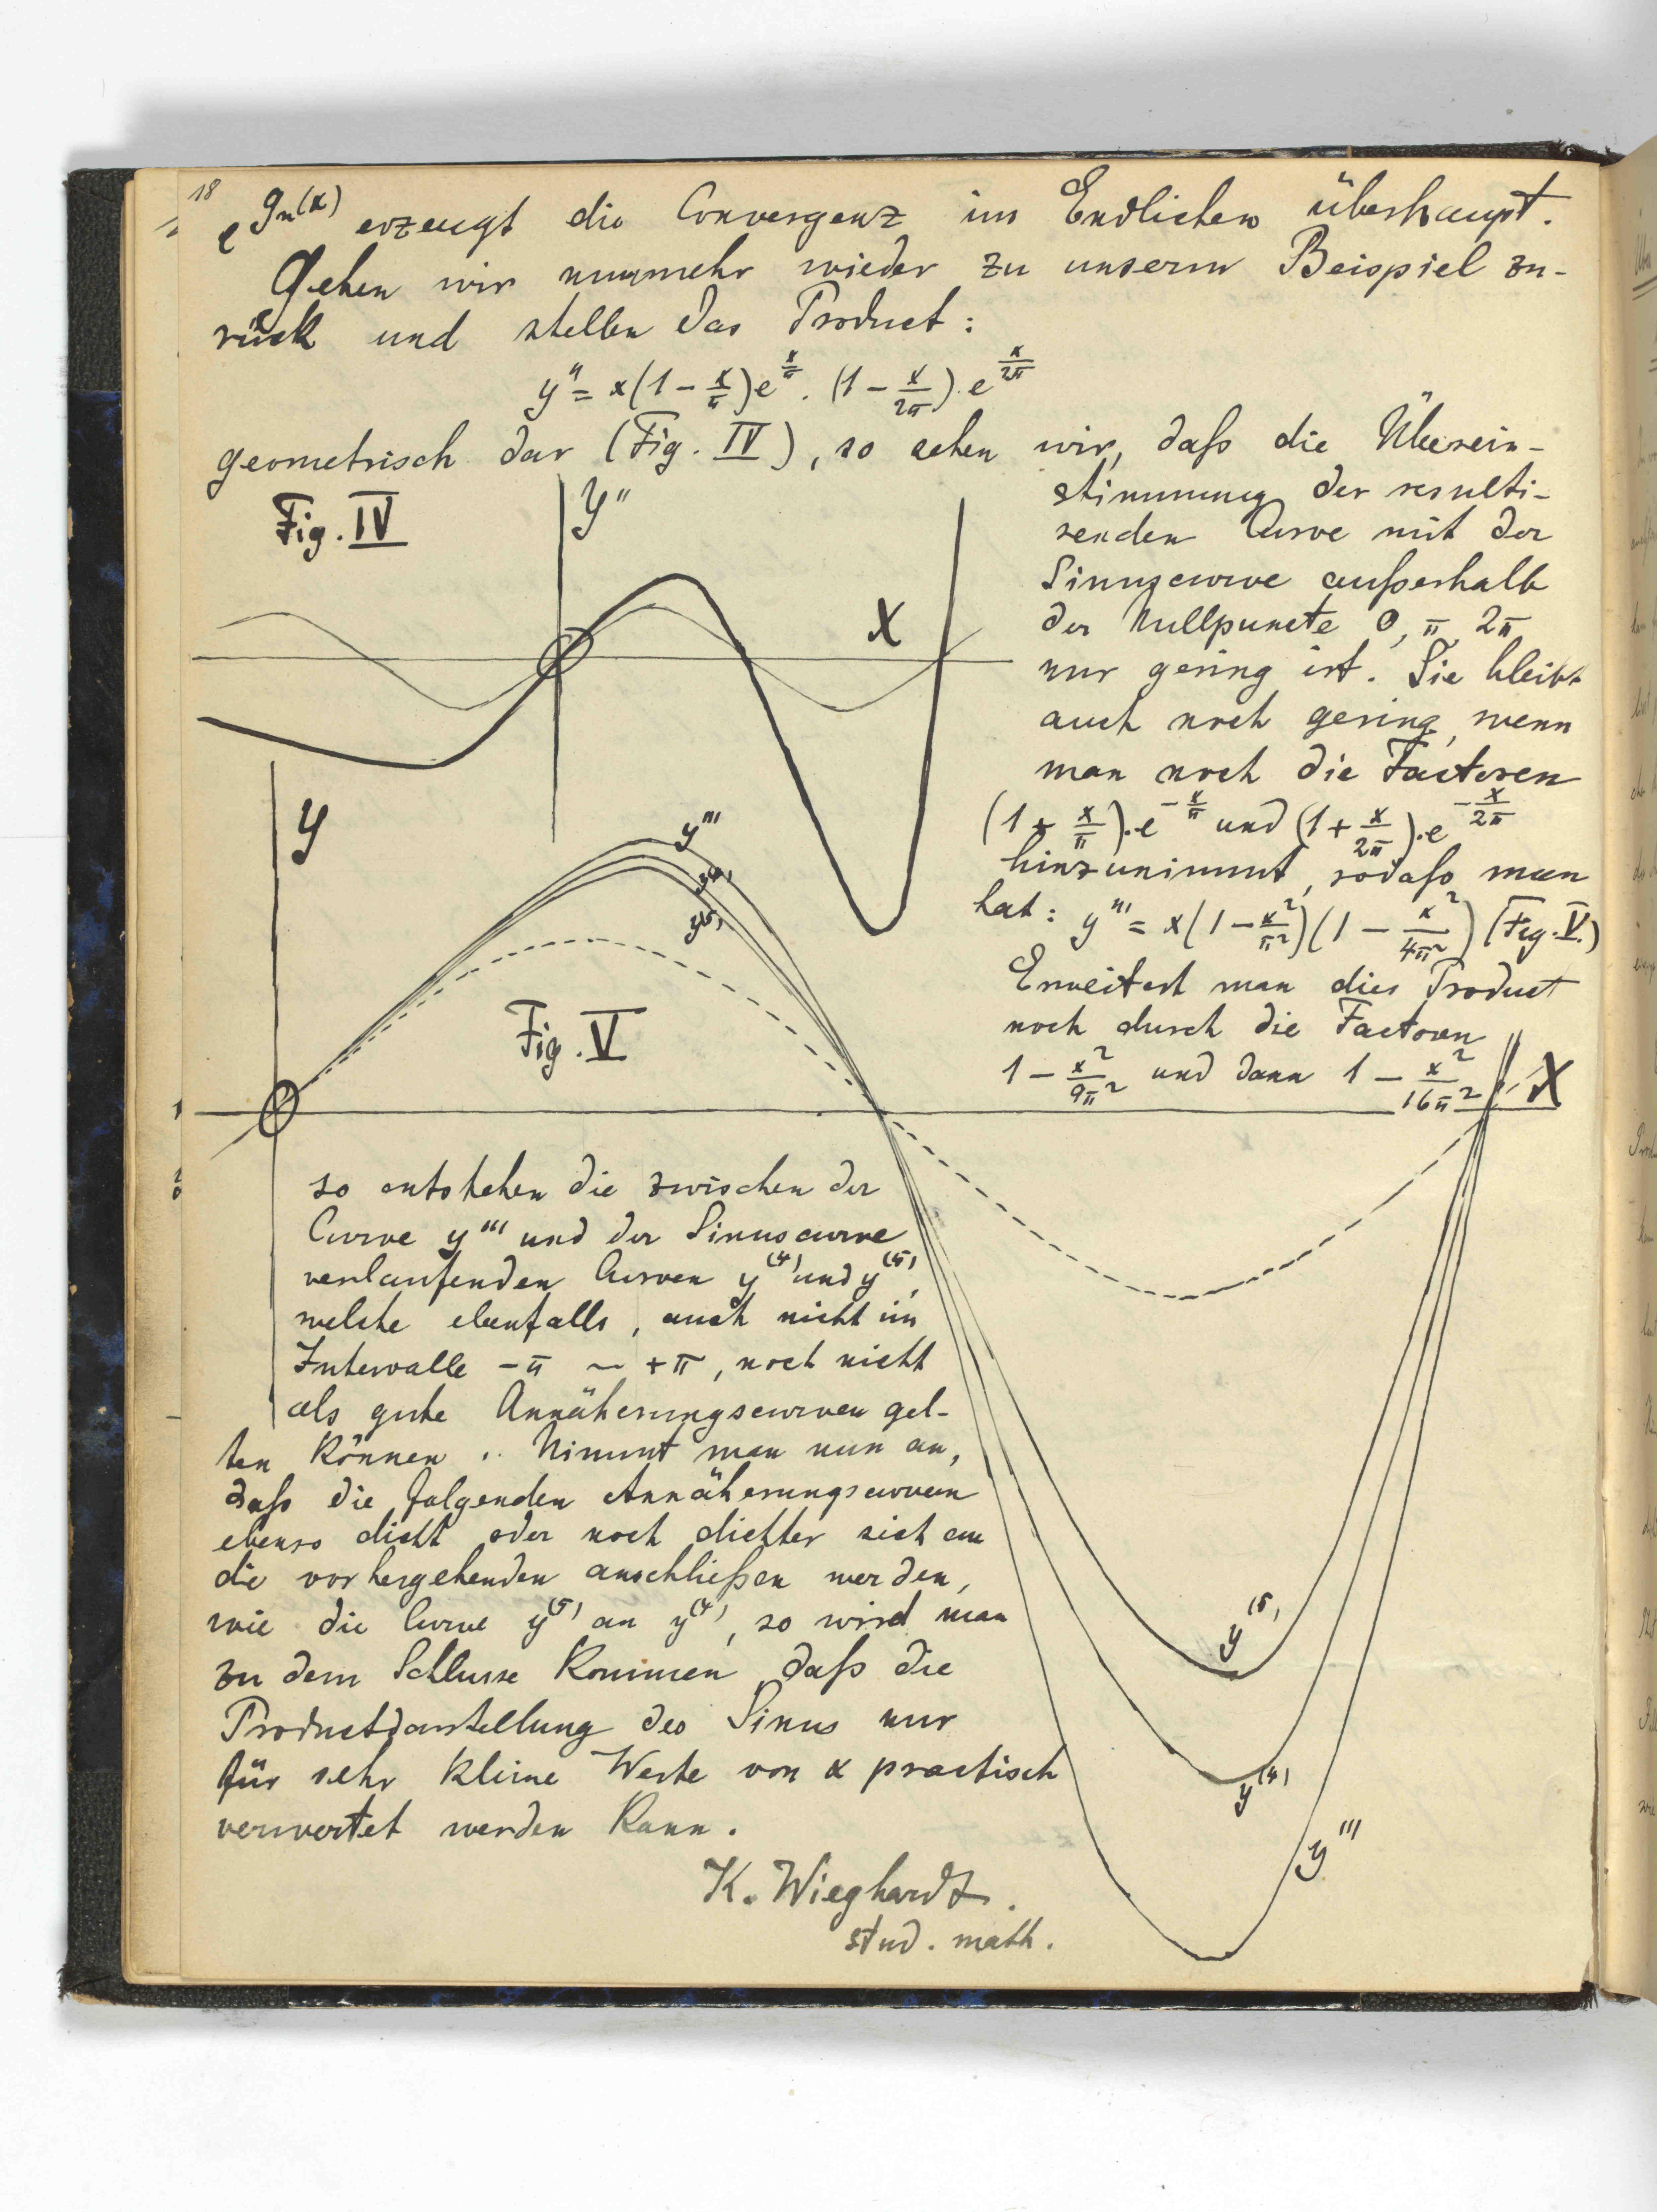 18
e^{g_n(x)} erzeugt die Convergenz im Endlichen überhaupt.
Gehen wir nunmehr wieder zu unserm Beispiel zu-
rück und stellen das Product:
y'' = x(1 - x/π)e^{x/π} . (1 - x/2π).e^{x/2π}
geometrisch dar (Fig. IV), so sehen wir, daß die Überein-
stimmung der resulti-
renden Curve mit der
Sinuscurve außerhalb
der Nullpuncte 0, π, 2π
nur gering ist. Sie bleibt
auch noch gering, wenn
man noch die Factoren
(1 + x/π).e^{-x/π} und (1 + x/2π).e^{-x/2π}
hinzunimmt, sodaß man
hat: y''' = x(1 - x²/π²)(1 - x²/4π²) (Fig. V.)
Erweitert man dies Product
noch durch die Factoren
1 - x²/9π² und dann 1 - x²/16π²
Fig. IV
y''
X
y
y'''
y^{(4)}
y^{(5)}
Fig. V
X
so entstehen die zwischen der
Curve y''' und der Sinuscurve
verlaufenden Curven y^{(4)} und y^{(5)},
welche ebenfalls, auch nicht im
Intervalle -π ~ +π, noch nicht
als gute Annäherungscurven gel-
ten können. Nimmt man nun an,
daß die folgenden Annäherungscurven
ebenso dicht oder noch dichter sich an
die vorhergehenden anschließen werden,
wie die Curve y^{(5)} an y^{(4)}, so wird man
zu dem Schlusse kommen, daß die
Productdarstellung des Sinus nur
für sehr kleine Werte von x practisch
verwertet werden kann.
K. Wieghardt.
stud. math.
y^{(5)}
y^{(4)}
y'''